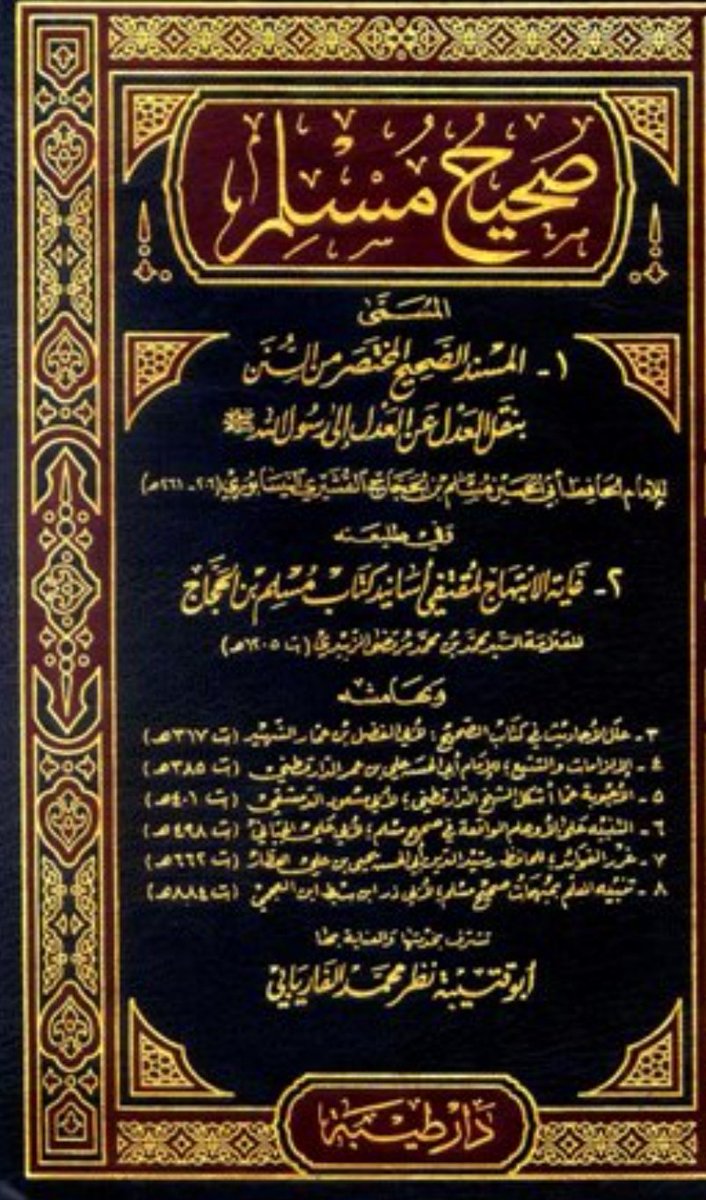 صَحِيحُ مُسْلِم
المُسَمَّى
١- المسند الصَّحِيح المختصَر من السُّنَن
بنَقْل العَدْل عَن العَدْل إلى رَسُول الله ﷺ
للإمام الحافظ أبي الحُسَين مُسْلم بن الحجَّاج القُشَيري النيسَابوري (٢٠٦ - ٢٦١هـ)
وفي طليعته
٢- غاية الابتهاج لمقتفي أسانيد كتاب مُسْلِم بن الحَجَّاج
للعلامة السيد محمد بن محمد مرتضى الزَّبيدي (ت ١٢٠٥هـ)
وبهامشه
٣- علل الأحاديث في كتاب الصَّحيح؛ لأبي الفضل بن عمار الشهيد (ت ٣١٧هـ)
٤- الإلزامات والتتبع؛ للإمام أبي الحسن علي بن عمر الدارقطني (ت ٣٨٥هـ)
٥- الأجوبة عما أشكل الشيخ الدارقطني؛ لأبي مسعود الدمشقي (ت ٤٠١هـ)
٦- التنبيه على الأوهام الواقعة في صحيح مسلم؛ لأبي علي الجياني (ت ٤٩٨هـ)
٧- غرر الفوائد؛ للحافظ رشيد الدين أبي الحسين يحيى بن علي العطار (ت ٦٦٢هـ)
٨- تنبيه المعلم بمبهمات صحيح مسلم؛ لأبي ذر ابن سبط ابن العجمي (ت ٨٨٤هـ)
تشرف بخدمتها والعناية بها
أبو قتيبة نظر محمد الفاريابي
دار طيبة